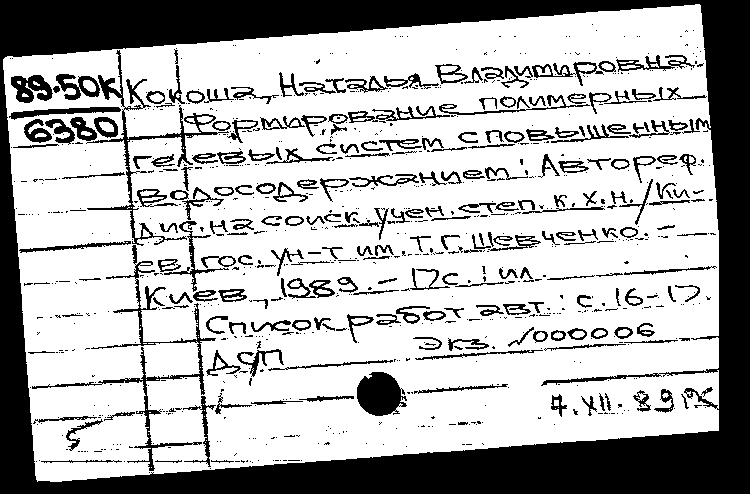 89-50К
6380
Кокоша, Наталья Владимировна.
Формирование полимерных
гелевых систем с повышенным
водосодержанием : Автореф.
дис. на соиск. учен. степ. к. х. н. / Ки-
ев. гос. ун-т им. Т. Г. Шевченко. –
Киев, 1989. – 17с. : ил.
Список работ авт. : с. 16-17.
ДСП Экз. №000006
7. XII. 89
5